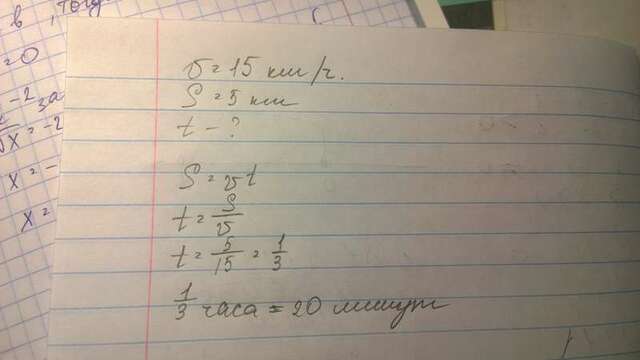 в , тогд
= 0
-2 за
x = -2
x = -
x =
v = 15 км/ч.
S = 5 км
t - ?
S = vt
t = S/v
t = 5/15 = 1/3
1/3 часа = 20 минут